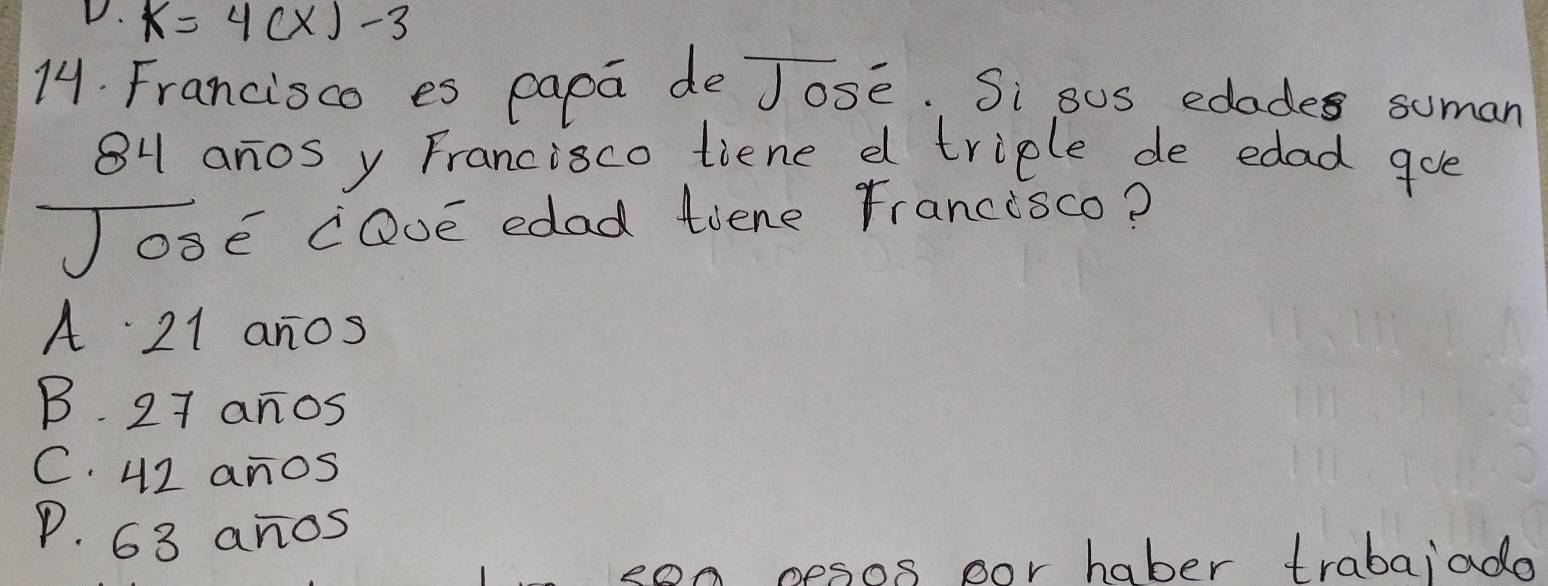 D. K = 4(x) - 3
14. Francisco es papá de José. Si sus edades suman
84 años y Francisco tiene el triple de edad que
José ¿Qué edad tiene Francisco?
A. 21 años
B. 27 años
C. 42 años
D. 63 años
pesos por haber trabajado